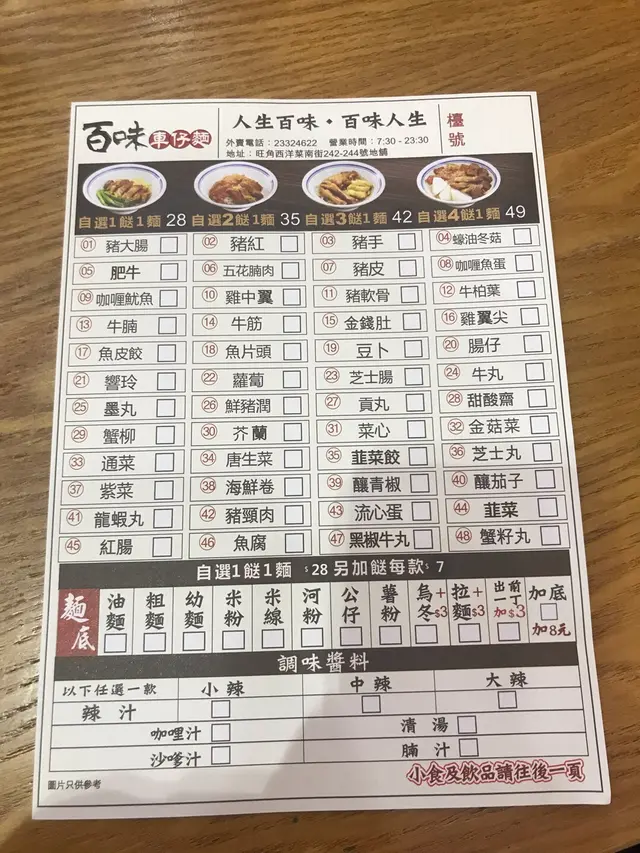 百味 車仔麵
人生百味·百味人生
外賣電話：23324622 營業時間：7:30 - 23:30
地址：旺角西洋菜南街242-244號地舖
檯號
自選1餸1麵 28 自選2餸1麵 35 自選3餸1麵 42 自選4餸1麵 49
01 豬大腸 02 豬紅 03 豬手 04 蠔油冬菇
05 肥牛 06 五花腩肉 07 豬皮 08 咖喱魚蛋
09 咖喱魷魚 10 雞中翼 11 豬軟骨 12 牛柏葉
13 牛腩 14 牛筋 15 金錢肚 16 雞翼尖
17 魚皮餃 18 魚片頭 19 豆卜 20 腸仔
21 響玲 22 蘿蔔 23 芝士腸 24 牛丸
25 墨丸 26 鮮豬潤 27 貢丸 28 甜酸齋
29 蟹柳 30 芥蘭 31 菜心 32 金菇菜
33 通菜 34 唐生菜 35 韮菜餃 36 芝士丸
37 紫菜 38 海鮮卷 39 釀青椒 40 釀茄子
41 龍蝦丸 42 豬頸肉 43 流心蛋 44 韮菜
45 紅腸 46 魚腐 47 黑椒牛丸 48 蟹籽丸
自選1餸1麵 $28 另加餸每款$ 7
麵底 油麵 粗麵 幼麵 米粉 米線 河粉 公仔 薯粉 烏冬+$3 拉麵+$3 出前一丁加$3 加底 加8元
調味醬料
以下任選一款 小辣 中辣 大辣
辣汁
咖哩汁 清湯
沙嗲汁 腩汁
圖片只供參考
小食及飲品請往後一頁